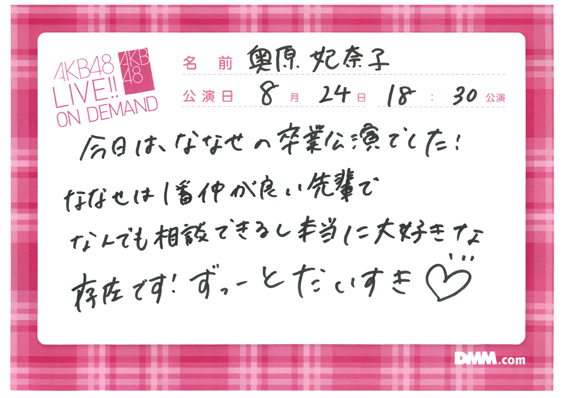 AKB48
LIVE!!
ON DEMAND
AKB
48
名前 奥原 妃奈子
公演日 8月 24日 18:30公演
今日は、ななせの卒業公演でした!
ななせは1番仲が良い先輩で
なんでも相談できるし本当に大好きな
存在です!ずっーとだいすき♡
DMM.com